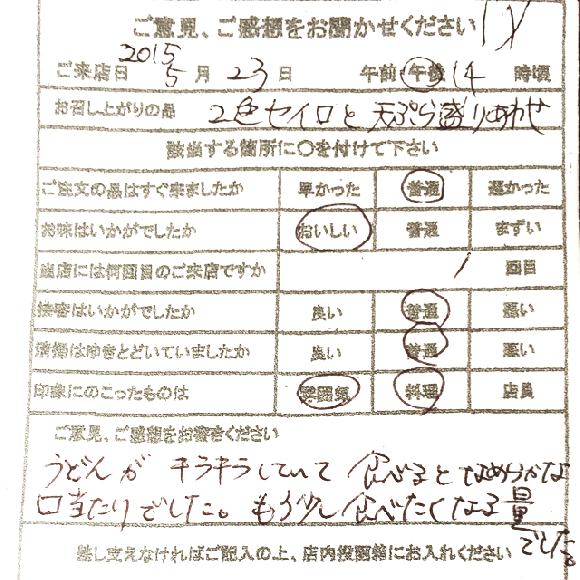 ご意見、ご感想をお聞かせください
2015
ご来店日 5月23日 午前 午後 14 時頃
お召し上がりの品 2色セイロと天ぷら盛りあわせ
該当する箇所に〇を付けて下さい
ご注文の品はすぐ来ましたか 早かった 普通 遅かった
お味はいかがでしたか おいしい 普通 まずい
当店には何回目のご来店ですか 1 回目
接客はいかがでしたか 良い 普通 悪い
清掃はゆきとどいていましたか 良い 普通 悪い
印象にのこったものは 雰囲気 料理 店員
ご意見、ご感想をお書きください
うどんが キラキラしていて 食べると なめらかな
口当たりでした。もう少し食べたくなる量
でした。
差し支えなければご記入の上、店内投函箱にお入れください